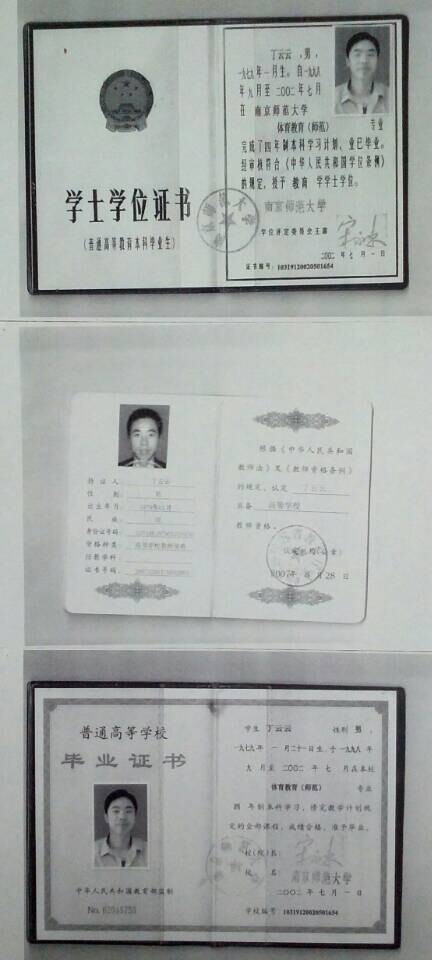 学士学位证书
(普通高等教育本科毕业生)
丁云云,男,
一九七九年一月生。自一九九八
年九月至二〇〇二年七月
在 南京师范大学
体育教育(师范) 专业
完成了四年制本科学习计划,业已毕业。
经审核符合《中华人民共和国学位条例》
的规定,授予 教育 学学士学位。
南京师范大学
学位评定委员会主席
二〇〇二年七月一日
证书编号:10319120020501654
持证人 丁云云
性别 男
出生年月
民族
身份证号码
资格种类 高等学校教师资格
任教学科
证书号码
根据《中华人民共和国
教师法》及《教师资格条例》
的规定,认定 丁云云
具备 高等学校
教师资格。
2007年 月28日
普通高等学校
毕业证书
中华人民共和国教育部监制
No.
学生 丁云云 性别 男,
一九七九年 一 月二十一日生,于一九九八年
九 月至 二〇〇二年 七 月在本校
体育教育(师范) 专业
四 年制本科学习,修完教学计划规
定的全部课程,成绩合格,准予毕业。
校(院)长:
校 名: 南京师范大学
二〇〇二年 七 月 一 日
学校编号:10319120020501654